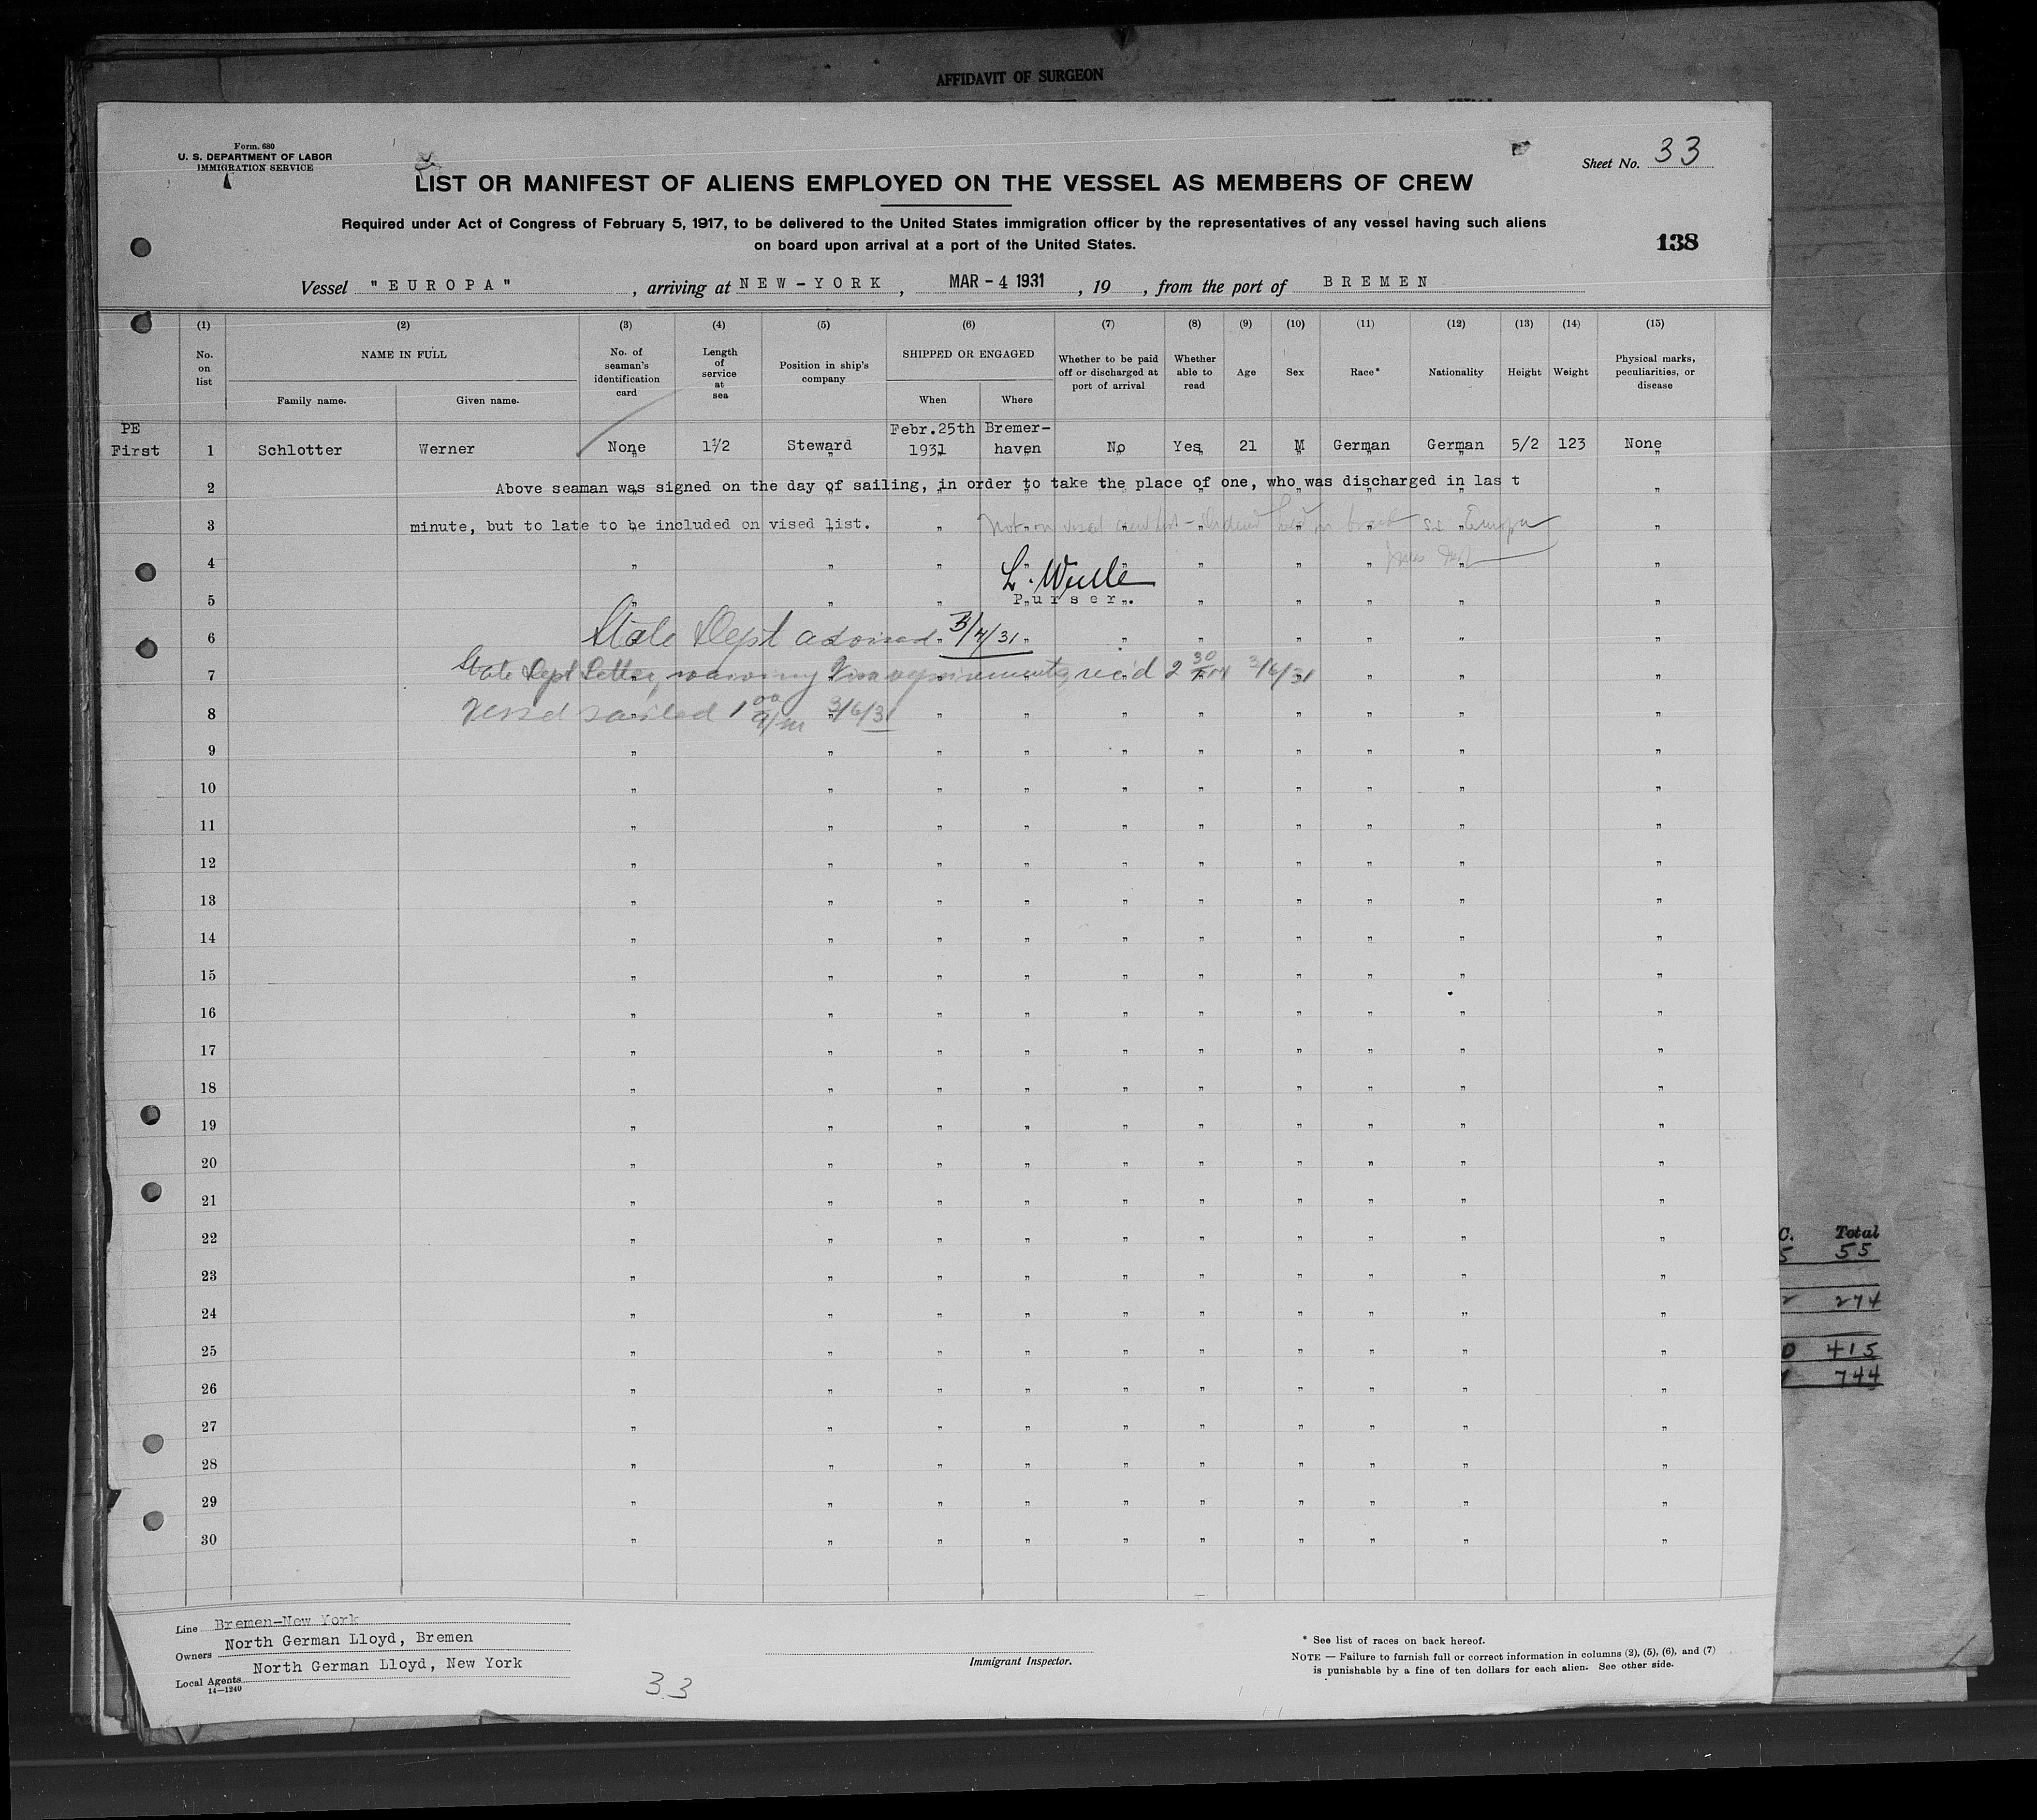 AFFIDAVIT OF SURGEON
Form. 680
U. S. DEPARTMENT OF LABOR
IMMIGRATION SERVICE
Sheet No. 33
LIST OR MANIFEST OF ALIENS EMPLOYED ON THE VESSEL AS MEMBERS OF CREW
Required under Act of Congress of February 5, 1917, to be delivered to the United States immigration officer by the representatives of any vessel having such aliens
on board upon arrival at a port of the United States.
138
Vessel "EUROPA", arriving at NEW-YORK, MAR - 4 1931, 19 , from the port of BREMEN
(1) (2) (3) (4) (5) (6) (7) (8) (9) (10) (11) (12) (13) (14) (15)
No. on list
NAME IN FULL
Family name. Given name.
No. of seaman's identification card
Length of service at sea
Position in ship's company
SHIPPED OR ENGAGED
When Where
Whether to be paid off or discharged at port of arrival
Whether able to read
Age
Sex
Race*
Nationality
Height
Weight
Physical marks, peculiarities, or disease
PE
First 1 Schlotter Werner None 1½ Steward Febr.25th 1931 Bremer-haven No Yes 21 M German German 5/2 123 None
2 Above seaman was signed on the day of sailing, in order to take the place of one, who was discharged in las t
3 minute, but to late to be included on vised list. Not on vised crew list - Ordered held on board SS Europa
4
L. Wulle
5 Purser.
6 State Dept advised 3/4/31
7 State Dept letter, waiving Visa requirements, rec'd 2 30 PM 3/6/31
8 Vessel sailed 1 00 a/m 3/6/31
9
10
11
12
13
14
15
16
17
18
19
20
21
22
23
24
25
26
27
28
29
30
C. Total
5 55
2 274
0 415
744
Line Bremen-New York
Owners North German Lloyd, Bremen
Local Agents North German Lloyd, New York
14—1240
33
Immigrant Inspector.
* See list of races on back hereof.
NOTE — Failure to furnish full or correct information in columns (2), (5), (6), and (7)
is punishable by a fine of ten dollars for each alien. See other side.